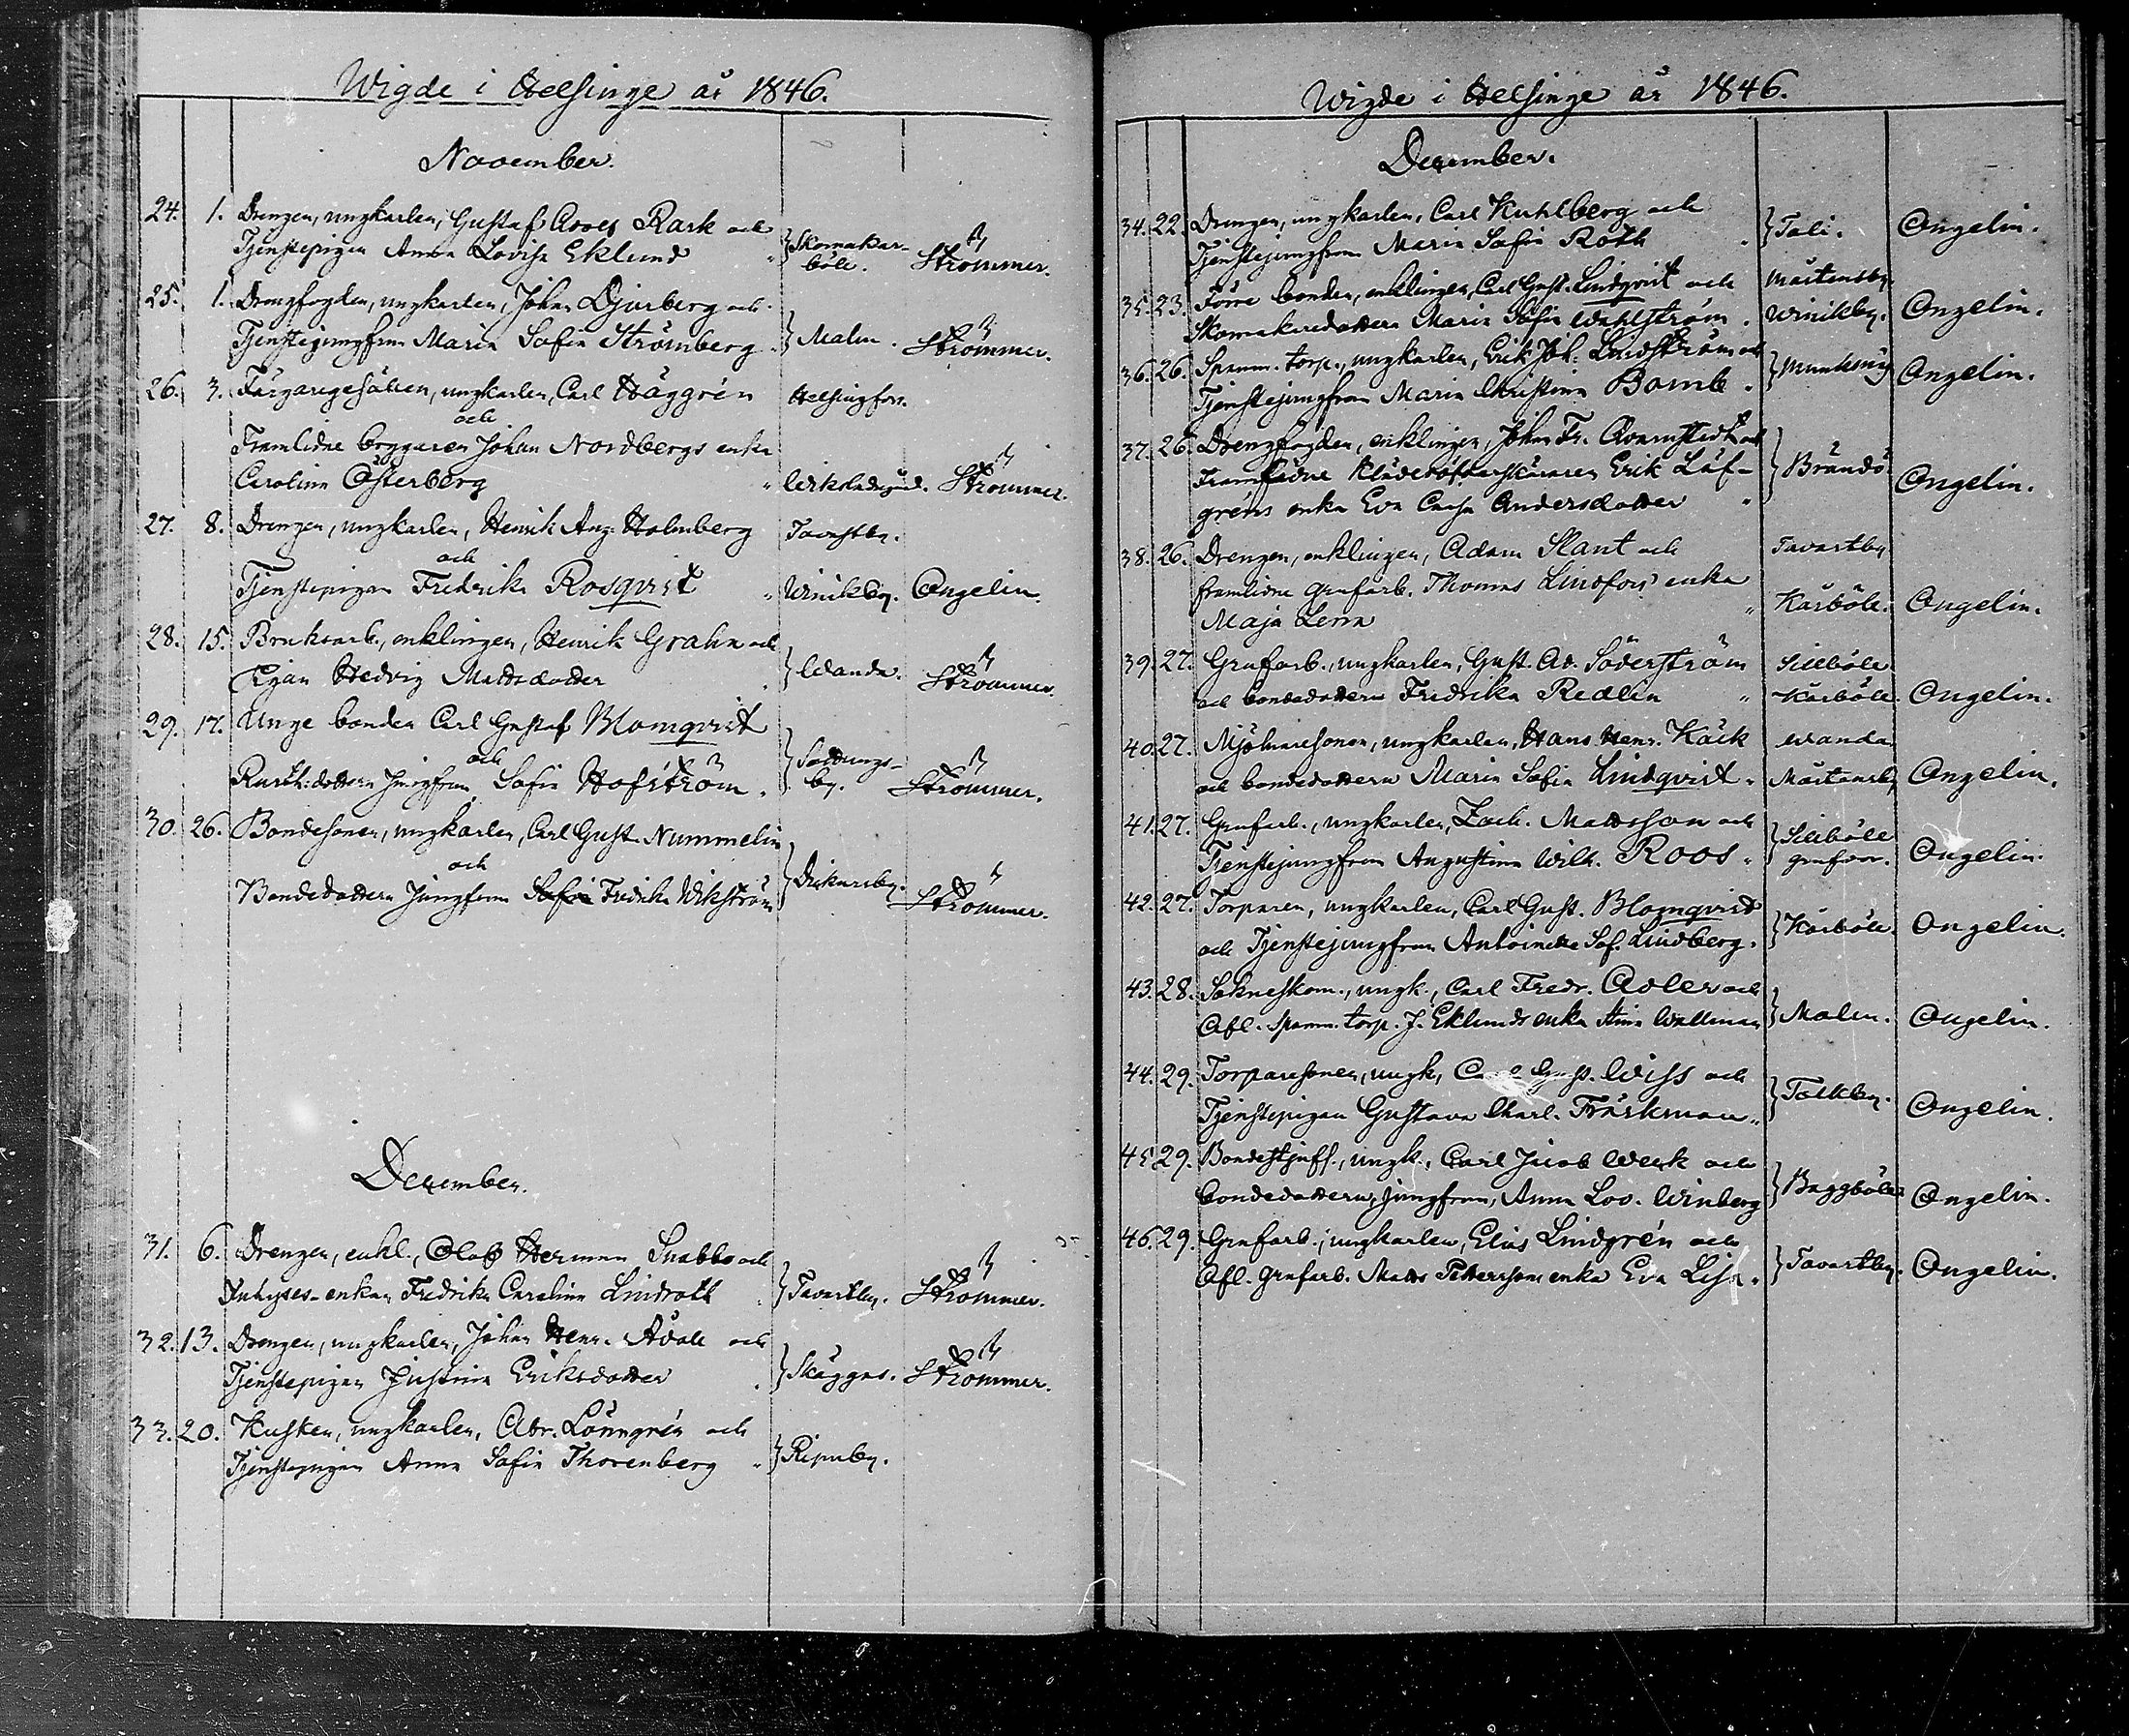 Wigde i Helsinge år 1846.
November.
24. 1. Drengen, ungkarlen, Gustaf Rask och
Tjenstepigan Anna Lovisa Eklund " Skomakar-
böle. Strömmer.
25. 1. Drengfogden, ungkarlen, Johan Djurberg och
Tjenstejungfrun Maria Sofia Strömberg. Malm. Strömmer.
26. 3. Färgaregesällen, ungkarlen, Carl Häggrén Helsingfors.
och
Framlidne bryggaren Johan Nordbergs enka
Carolina Österberg " Strömmer.
27. 8. Drengen, ungkarlen, Henrik Aug. Holmberg Tavastby.
och
Tjenstepigan Fredrika Rosqvist " Winikby. Ongelin.
28. 15. Bruksarb., enklingen, Henrik Grahn och
Pigan Hedvig Mattsdotter Wanda. Strömmer.
29. 17. Unge bonden Carl Gustaf Blomqvist
och
Rusth: dottern Jungfrun Sofia Hofström. Sottungs-
by. Strömmer.
30. 26. Bondesonen, ungkarlen, Carl Gust. Nummelin
och
Bondedottern Jungfrun Sofia Fredrika Wikström Dickursby. Strömmer.
December.
31. 6. Drengen, enkl., Olof Herman Snabb och
Inhyses-enkan Fredrika Carolina Lindroth Tavastby. Strömmer.
32. 13. Drengen, ungkarlen, Johan Henr. och
Tjenstepigan Justina Eriksdotter Skäggas. Strömmer.
33. 20. Kusken, ungkarlen, Abr. Lönngrén och
Tjenstepigan Anna Sofia Thorenberg " Ripuby.
Wigde i Helsinge år 1846.
December.
34. 22. Drengen, ungkarlen, Carl Kuhlberg och
Tjenstejungfrun Maria Sofia Roth " Tali. Ongelin.
35. 23. Förre bonden, enklingen, Carl Gust. Lindqvist och Mårtensby
Skomakaredottern Maria Sofia Wahlström. Winikby. Ongelin.
36. 26. Spanm. torp., ungkarlen, Erik Joh. Lindström och
Tjenstejungfrun Maria Christina Bomb. Munksnäs Ongelin.
37. 26. Drengfogden, enklingen, Johan Fr. Qvarnstedt och
Framlidne Erik Löf-
gréns enka Eva Caisa Andersdotter " Brändö Ongelin.
38. 26. Drengen, enklingen, Adam Slant och Tavastby
framlidne grufarb. Thomas Lindfors' enka
Maja Lena " Kårböle. Ongelin.
39. 27. Grufarb., ungkarlen, Gust. Ad. Söderström Sillböle
och bondedottern Fredrika Redlin " Kårböle. Ongelin.
40. 27. Mjölnaresonen, ungkarlen, Hans Henr. Käck Wanda
och bondedottern Maria Sofia Lindqvist " Mårtensby Ongelin.
41. 27. Grufarb., ungkarlen, Zach. Mattsson och
Tjenstejungfrun Augustina Wilh. Roos " Sillböle
grufvor. Ongelin.
42. 27. Torparen, ungkarlen, Carl Gust. Blomqvist
och Tjenstejungfrun Antoinetta Sof. Lindberg. Kårböle. Ongelin.
43. 28. Sockneskom., ungk., Carl Fredr. Adler och
Afl. spanm. torp. J. Eklunds enka Stina Wallman Malm. Ongelin.
44. 29. Torparesonen, ungk., Carl Gust. Wiss och
Tjenstepigan Gustava Charl. Träskman " Tolkby. Ongelin.
45. 29. Bondestjufs., ungk., Carl Jacob Werk och
bondedottern, jungfrun, Anna Lov. Winberg Baggböle Ongelin.
46. 29. Grufarb., ungkarlen, Elias Lindgrén och
Afl. grufarb. Matts Pettersons enka Eva Lisa " Tavastby. Ongelin.